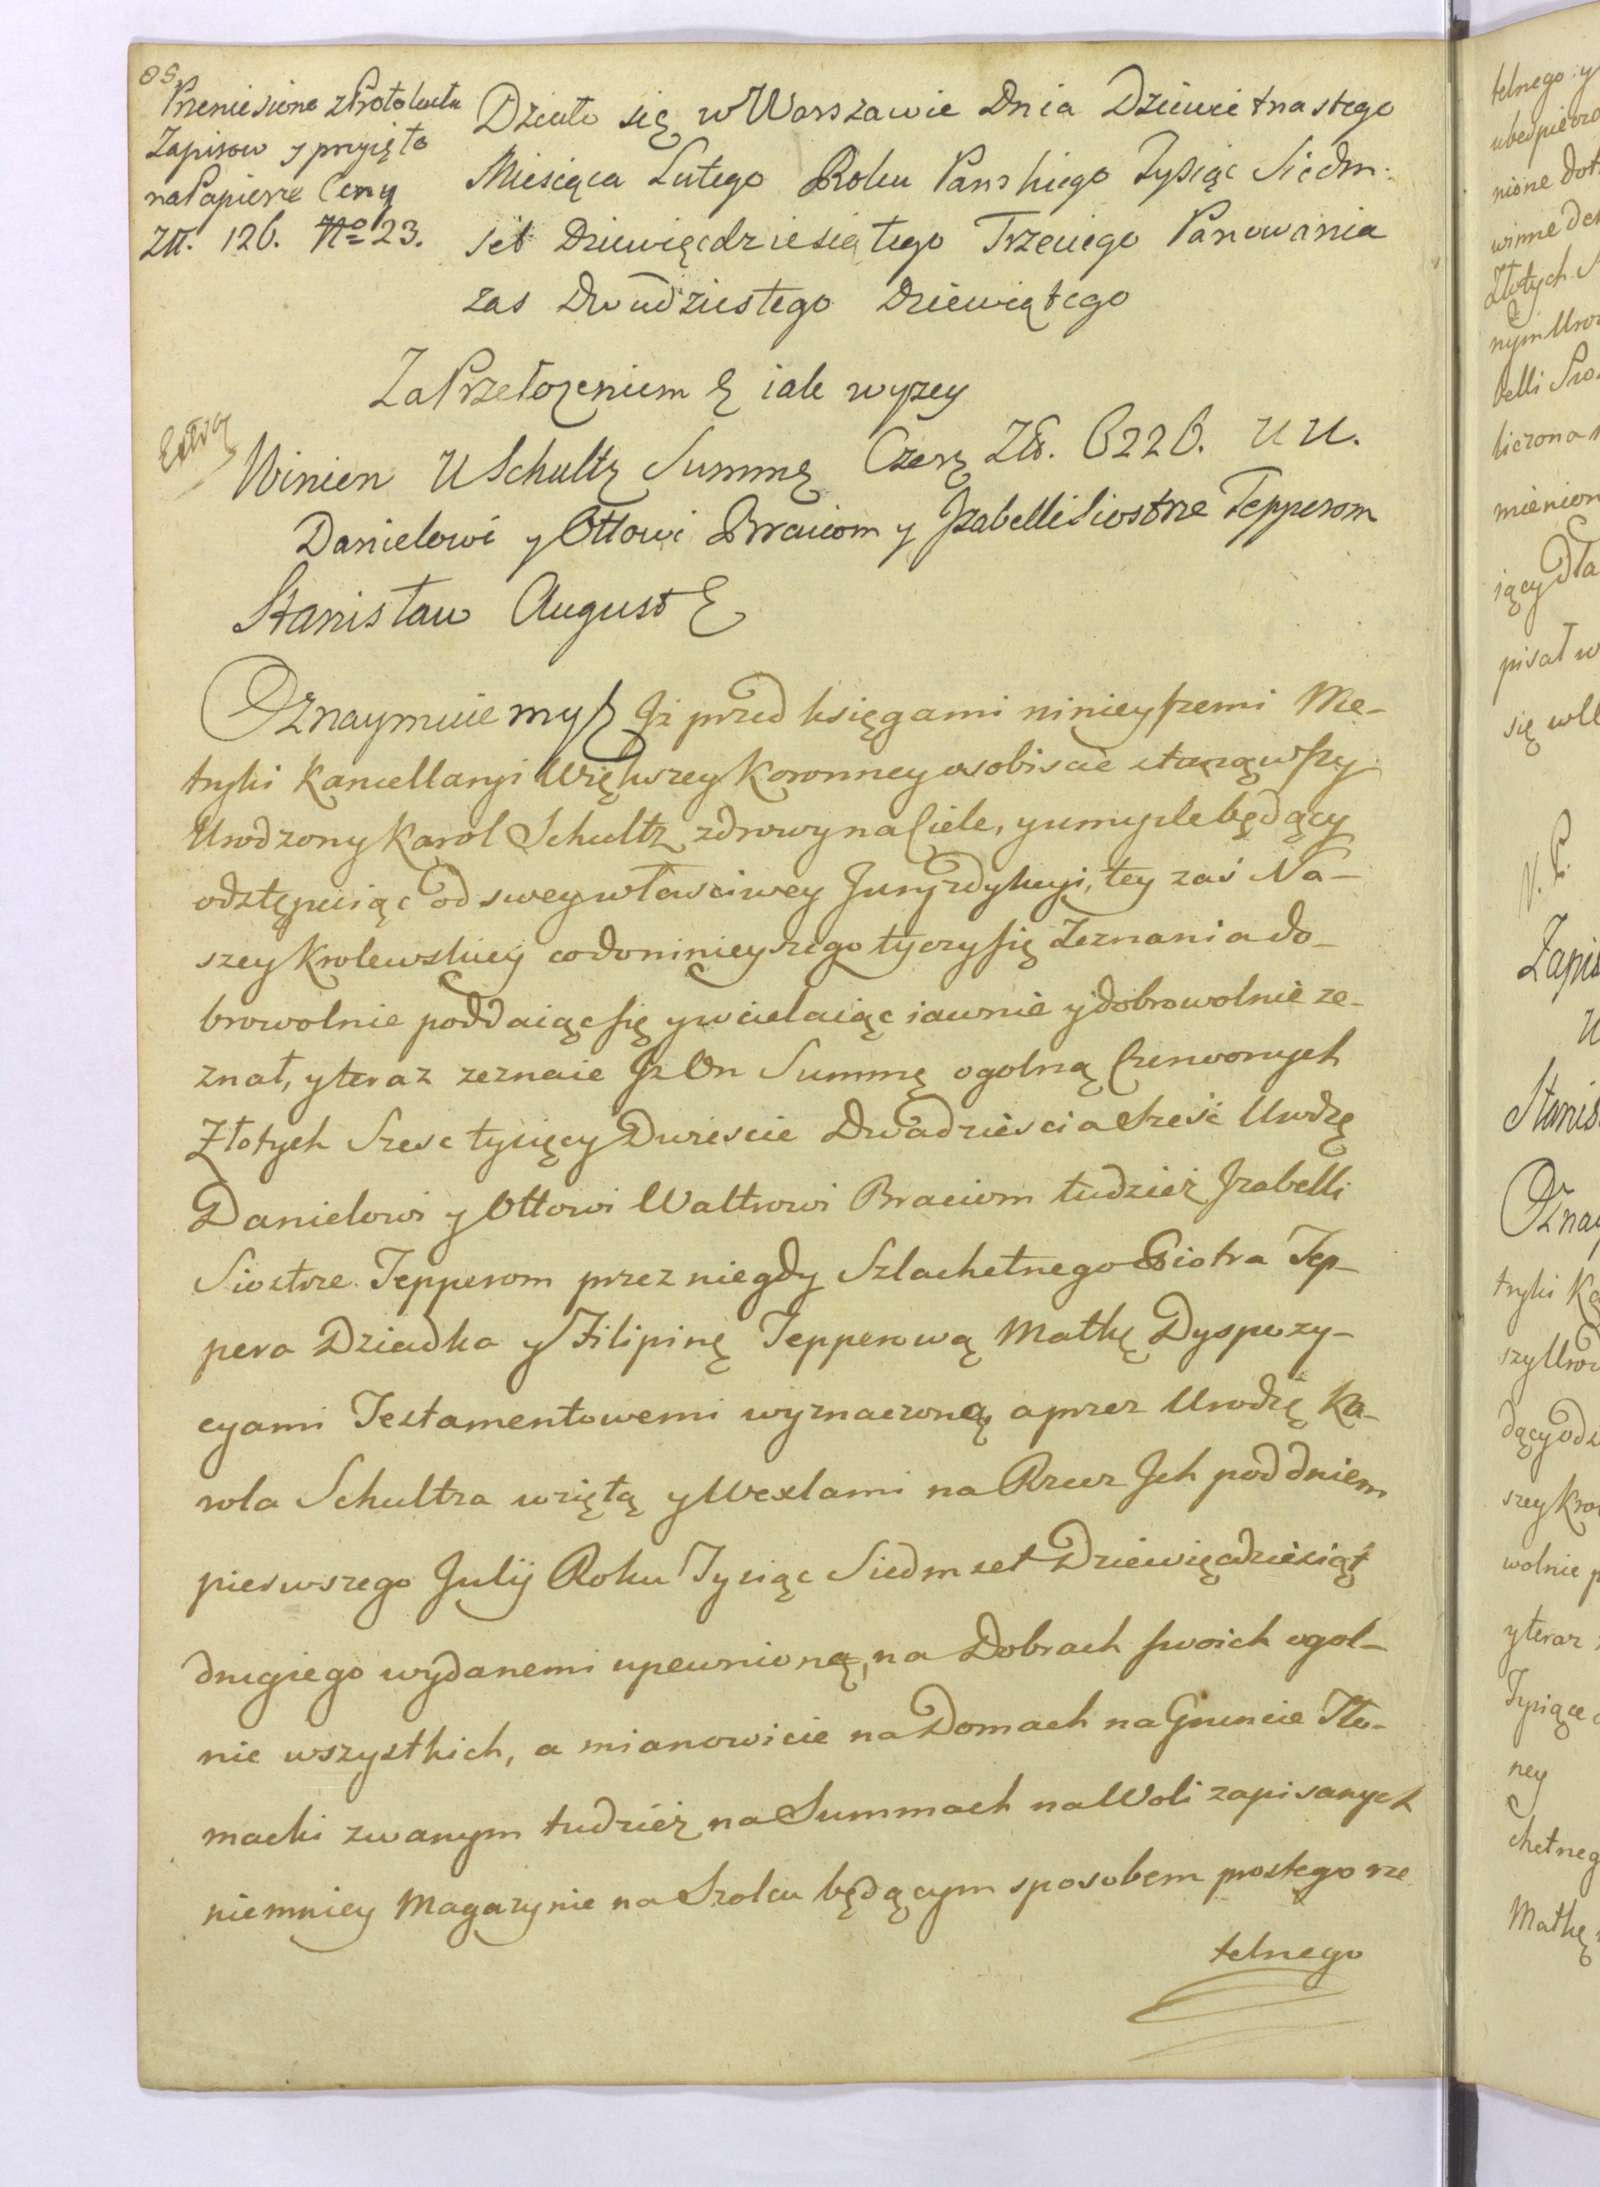 Przeniesione z Protokułu
Zapisow y przyięto
na Papierze Ceny
Zł. 126. No 23.
Działo się w Warszawie Dnia Dziewietnastego
Miesiąca Lutego Roku Panskiego Tysiąc Siedm-
set Dziewięcdziesiątego Trzeciego Panowania
zas Dwudziestego Dziewiątego
Za Przełożeniem & iak wyzey
Winien U Schultz Summę Czerw Zł. 6226. UU.
Danielowi y Ottowi Braciom y Jzabelli Siostrze Tepperom
Stanisław August &
Oznaymuiemy & Jż przed księgami ninieyszemi Me-
tryki Kancellaryi Większey Koronney osobiscie stanąwszy
Urodzony Karol Schultz zdrowy na Ciele, y umysle będący
odstępuiąc od swey własciwey Juryzdykcyi, tey zaś Na-
szey Krolewskiey co do ninieyszego tyczy się Zeznania do-
browolnie poddaiąc się y wcielaiąc iawnie y dobrowolnie ze-
znał, y teraz zeznaie Jz On Summę ogolną Czerwonych
Złotych Szesc tysięcy Dwiescie Dwadziescia Sześć Urodzę
Danielowi y Ottowi Waltrowi Braciom tudzież Jzabelli
Siostrze Tepperom przez niegdy Szlachetnego Piotra Tep-
pera Dziadka y Filipinę Tepperową Matkę Dyspozy-
cyami Testamentowemi wyznaczoną, a przez Urodzę Ka-
rola Schultza wziętą y Wexlami na Rzecz Jch pod dniem
pierwszego Julij Roku Tysiąc Siedmset Dziewięcdziesiąt
drugiego wydanemi upewnioną, na Dobrach swoich ogol-
nie wszystkich, a mianowicie na Domach na Gruncie Tło-
macki zwanym tudzież na Summach na Woli zapisanych
niemniey Magazynie na Szolcu będącym sposobem prostego rze
telnego